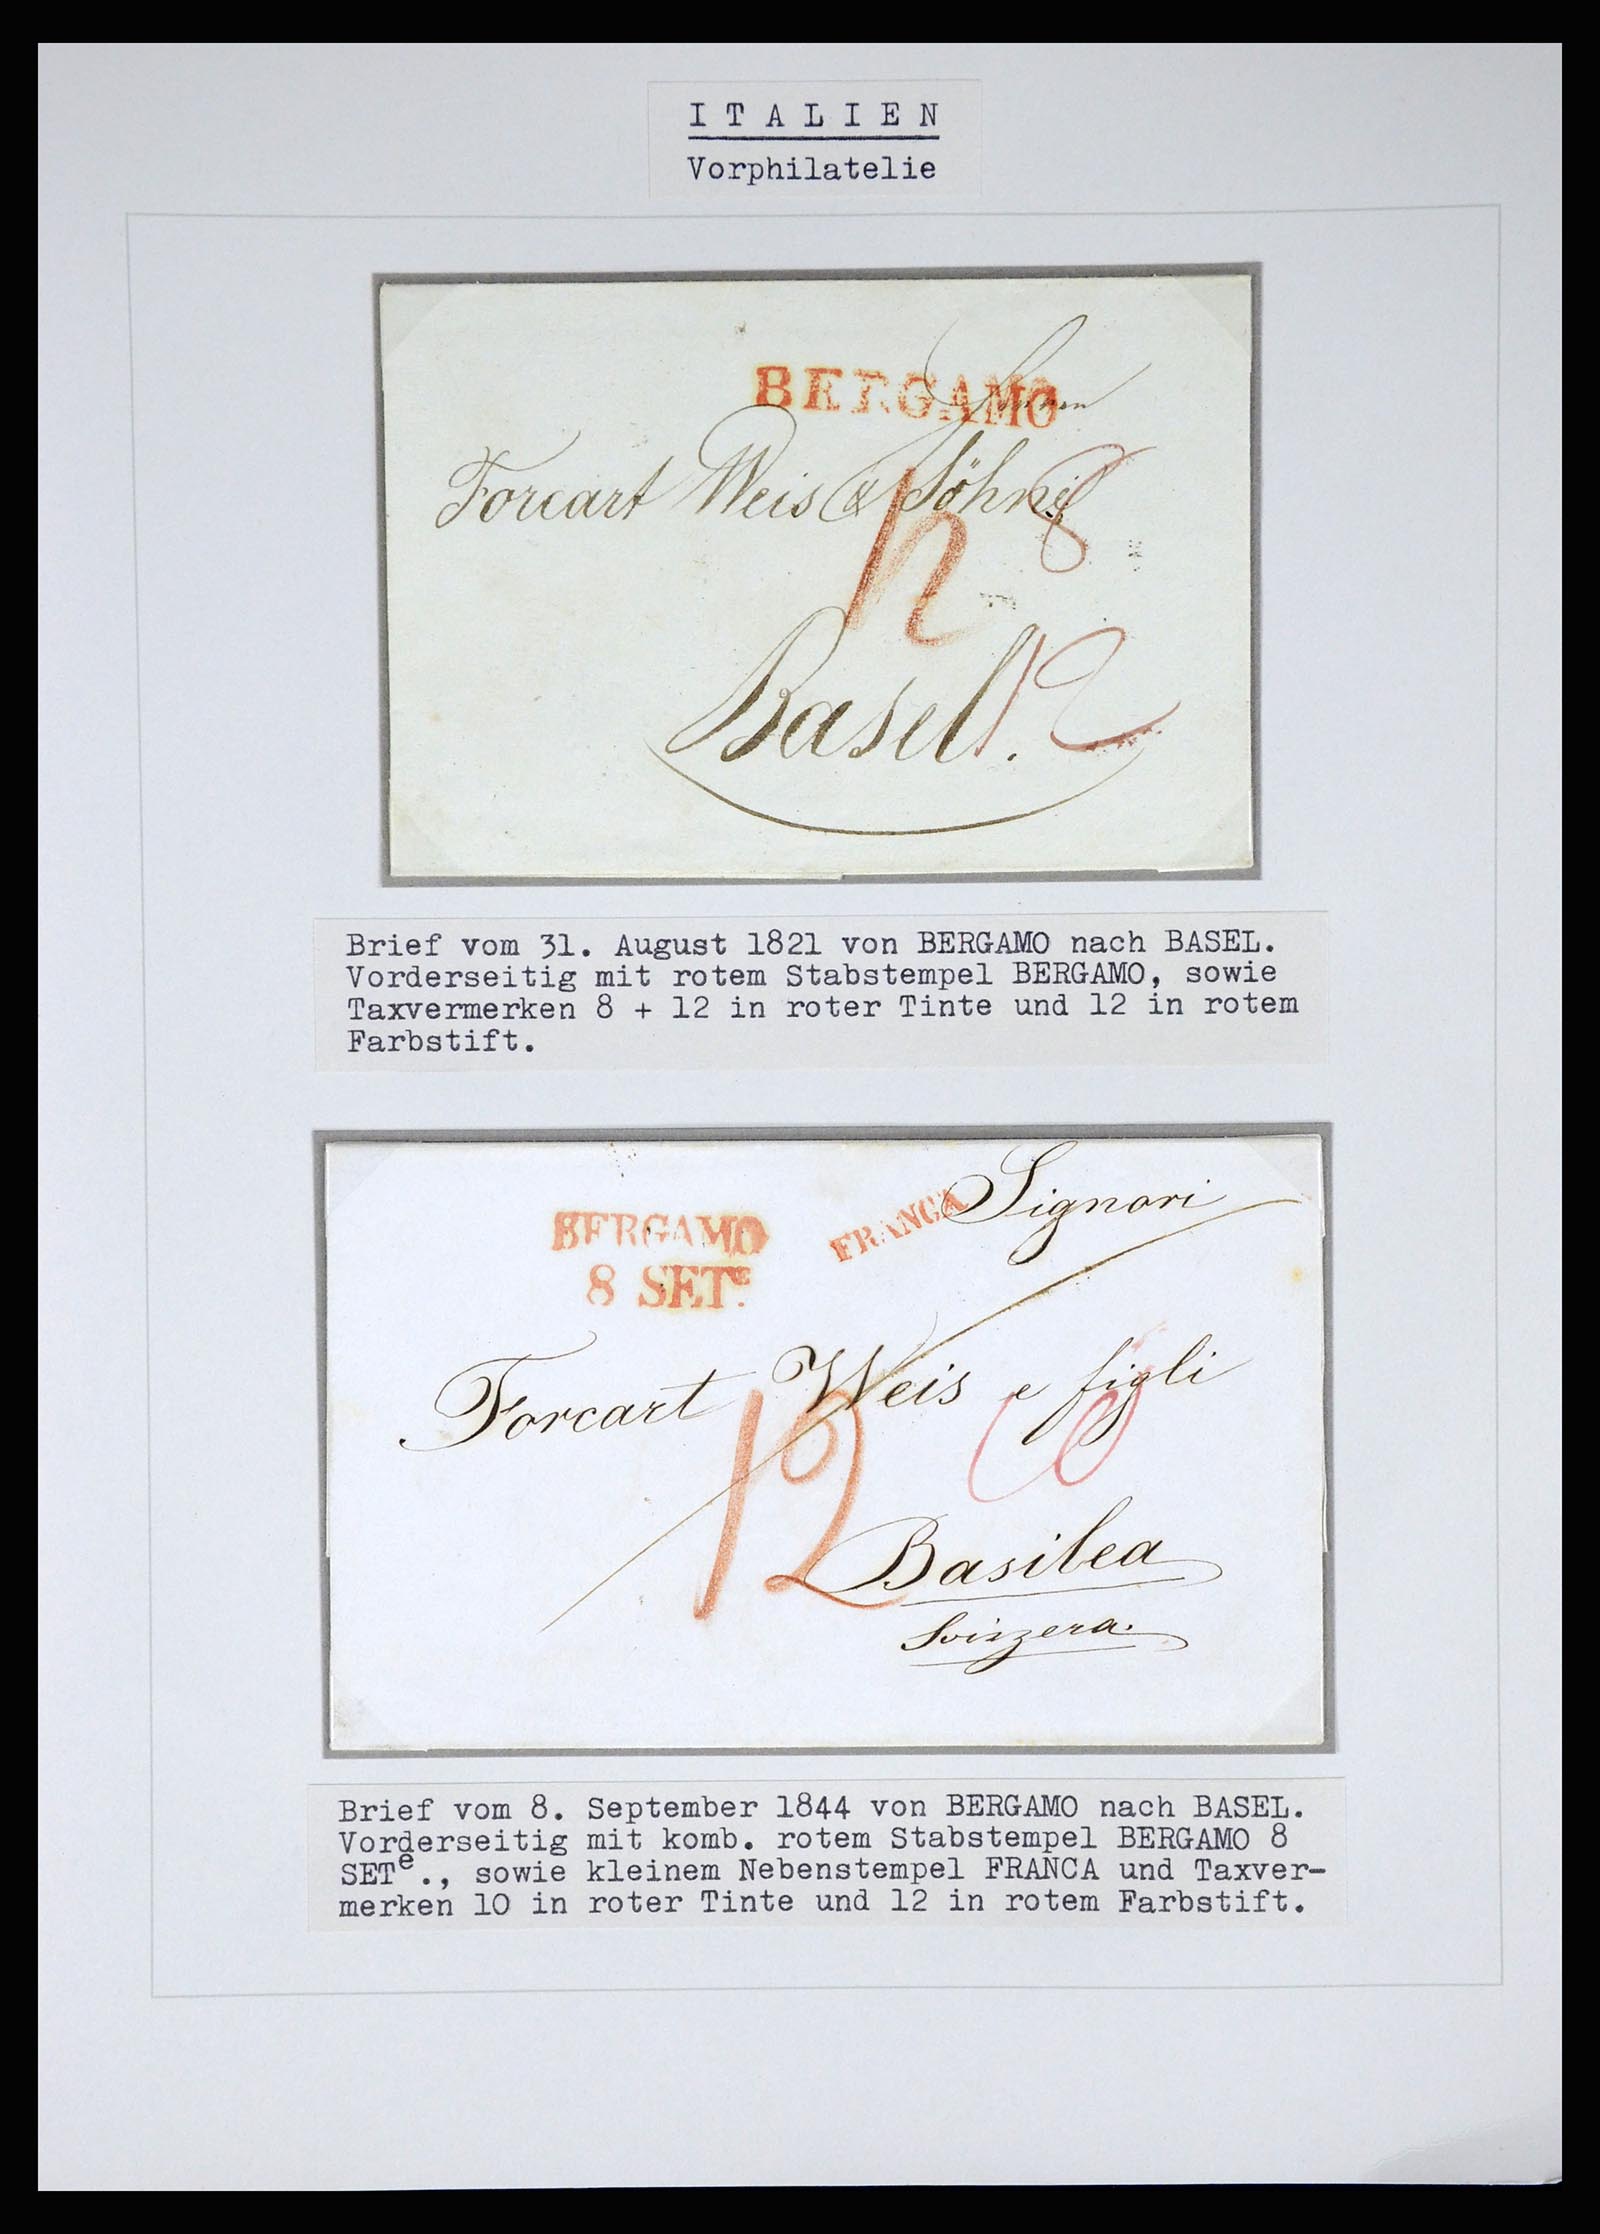 ITALIEN
Vorphilatelie
BERGAMO
Forcart Weis & Söhne
8
12
Basel.
12
Brief vom 31. August 1821 von BERGAMO nach BASEL.
Vorderseitig mit rotem Stabstempel BERGAMO, sowie
Taxvermerken 8 + 12 in roter Tinte und 12 in rotem
Farbstift.
Signori
FRANCA
BERGAMO
8 SETᴱ.
Forcart Weis e figli
10
12
Basilea
Svizzera.
Brief vom 8. September 1844 von BERGAMO nach BASEL.
Vorderseitig mit komb. rotem Stabstempel BERGAMO 8
SETᵉ., sowie kleinem Nebenstempel FRANCA und Taxver-
merken 10 in roter Tinte und 12 in rotem Farbstift.